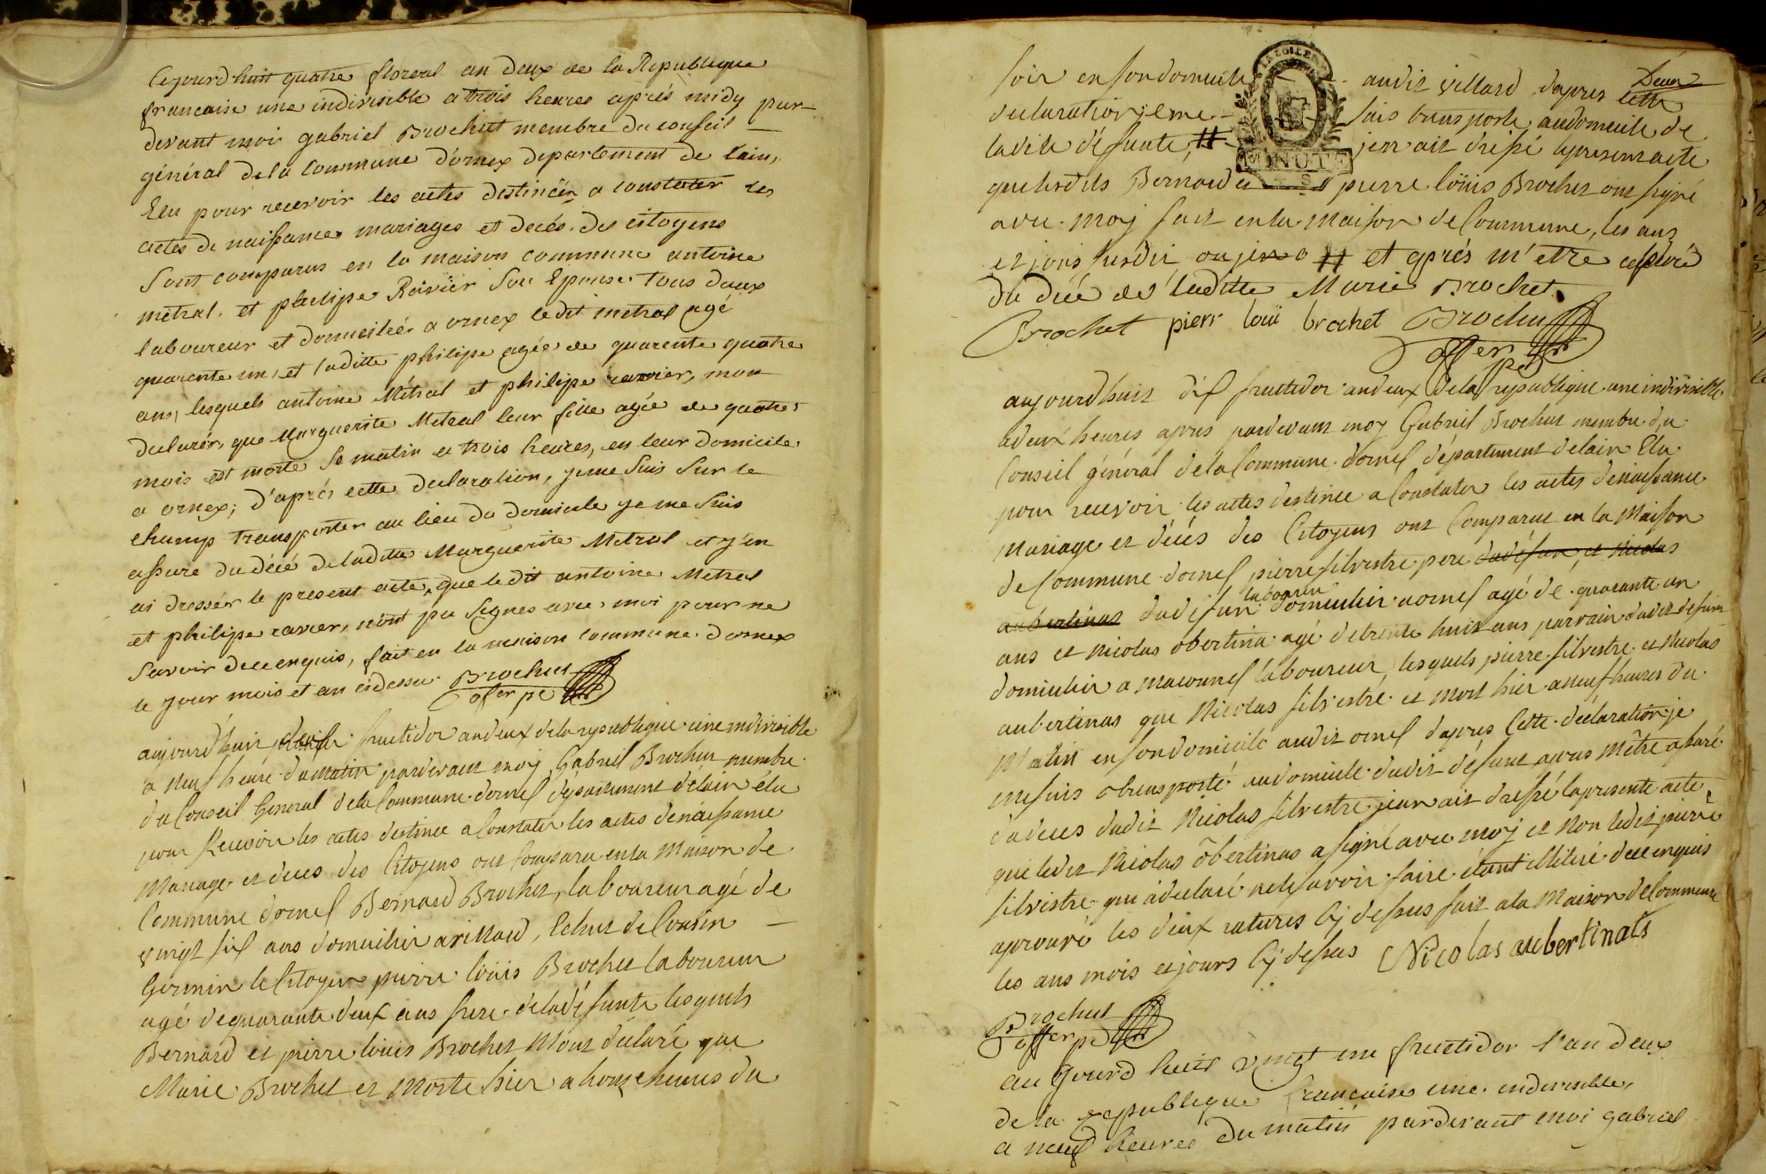 Cejourdhuit quatre floreal an deux de la Republique
francaise une indivisible a trois heures aprés midy par
devant moi gabriel Brochut membre du conseil
général dela Commune d'ornex departement de lain,
Elu pour recevoir les actes destinéz a constater les
actes de naissances mariages et decés des citoyens
sont comparus en la maison commune antoine
métral et philipe Ravier son Epouse tous deux
laboureur et domicilies a ornex ledit métral agé
quarente un, et laditte philipe agée de quarente quatre
ans, lesquels antoine Métral et philipe ravier, mon
declarér, que Marguerite Metral leur fille agée de quatre
mois est morte se matin a trois heures, en leur domicile
a ornex; d'aprés cette declaration, je me suis sur le
champ transporter au lieu du domicile je me suis
assuré du décé deladitte Marguerite Metral et j'en
ai dressér le present acte, que le dit antoine Metral
et philipe ravier, n'ont pu signer avec moi pour ne
savoir dece enquis, fait en la maison commune d'ornex
le jour mois et an cidessu Brochut
offer pc
aujourd'huit fructidor an deux dela republique une indivisible
a neuf heure du matin pardevant moy Gabriel Brochut membre
du Conseil General dela Commune dornes département delain élu
pour Recevoir les actes destinee a Constater les actes denaissance
Mariage et deces des Citoyens ont Comparu enla Maison de
Commune dornes Bernard Brochet, laboureur agé de
vingt six ans domicilier a villard, de Cousin
Germin le Citoyen pierre loüis Brochet laboureur
agé dequarante deux ans frere deladéfunte lesquels
Bernard et pierre louis Brochet Mont déclaré que
Marie Brochet et Morte hier a honze heures du
soir en son domicile audit villard dapres cette
declaration je me suis transporte audomicile de
ladite défunte, # jen nait drésé lapresent acte
que lesdits Bernard et pierre loüis Brochet ont signé
avec moy fait enla maison de Commune, les ans
et jours susdit # et aprés m'etre assuré
du décé de laditte Marie Brochet
Brochet pierr loui brochet Brochut
offer pc
aujourdhuit dix fructidor andeux dela republique une indivisible
adeux heures apres pardevant moy Gabriel Brochut membre du
Conseil général dela Commune dornes département delain Elu
pour recevoir les actes destinee a Constater les actes denaissance
Mariage et décés des Citoyens ont Comparut en la Maison
de Commune dornes pierre silvestre pere dudéfun, et Nicolas
aubertinas dudéfun laboureur domicilier aornes agé de quarante un
ans et Nicolas obertina agé detrente huit ans parrain dudit defunt
domicilier a Maconnes laboureur, lesquels pierre silvestre et Nicolas
aubertinas que Nicolas silvestre et mort hier aneuf heures du
Matin en son domicile audit ornes dapres Cette déclaration je
mesuis transporté audomicile dudit défunt apres Mêtre assuré
dudeces dudit Nicolas silvestre jenn ait dressé lapresente acte
que ledit Nicolas ôbertinas asigné avec moy et Non ledit pierre
silvestre qui adeclaré nesavoir faire étant illitéré dece enquis
aprouvé les deux ratures Cy dessus fait ala Maison deCommune
les ans mois et jours Cy dessus Nicolas aubertinats
Brochut
offer pc
au jourd huit vingt un fructidor l'an deux
de la republique francaise une indivisible,
a neuf heures du matin pardevant moi gabriel